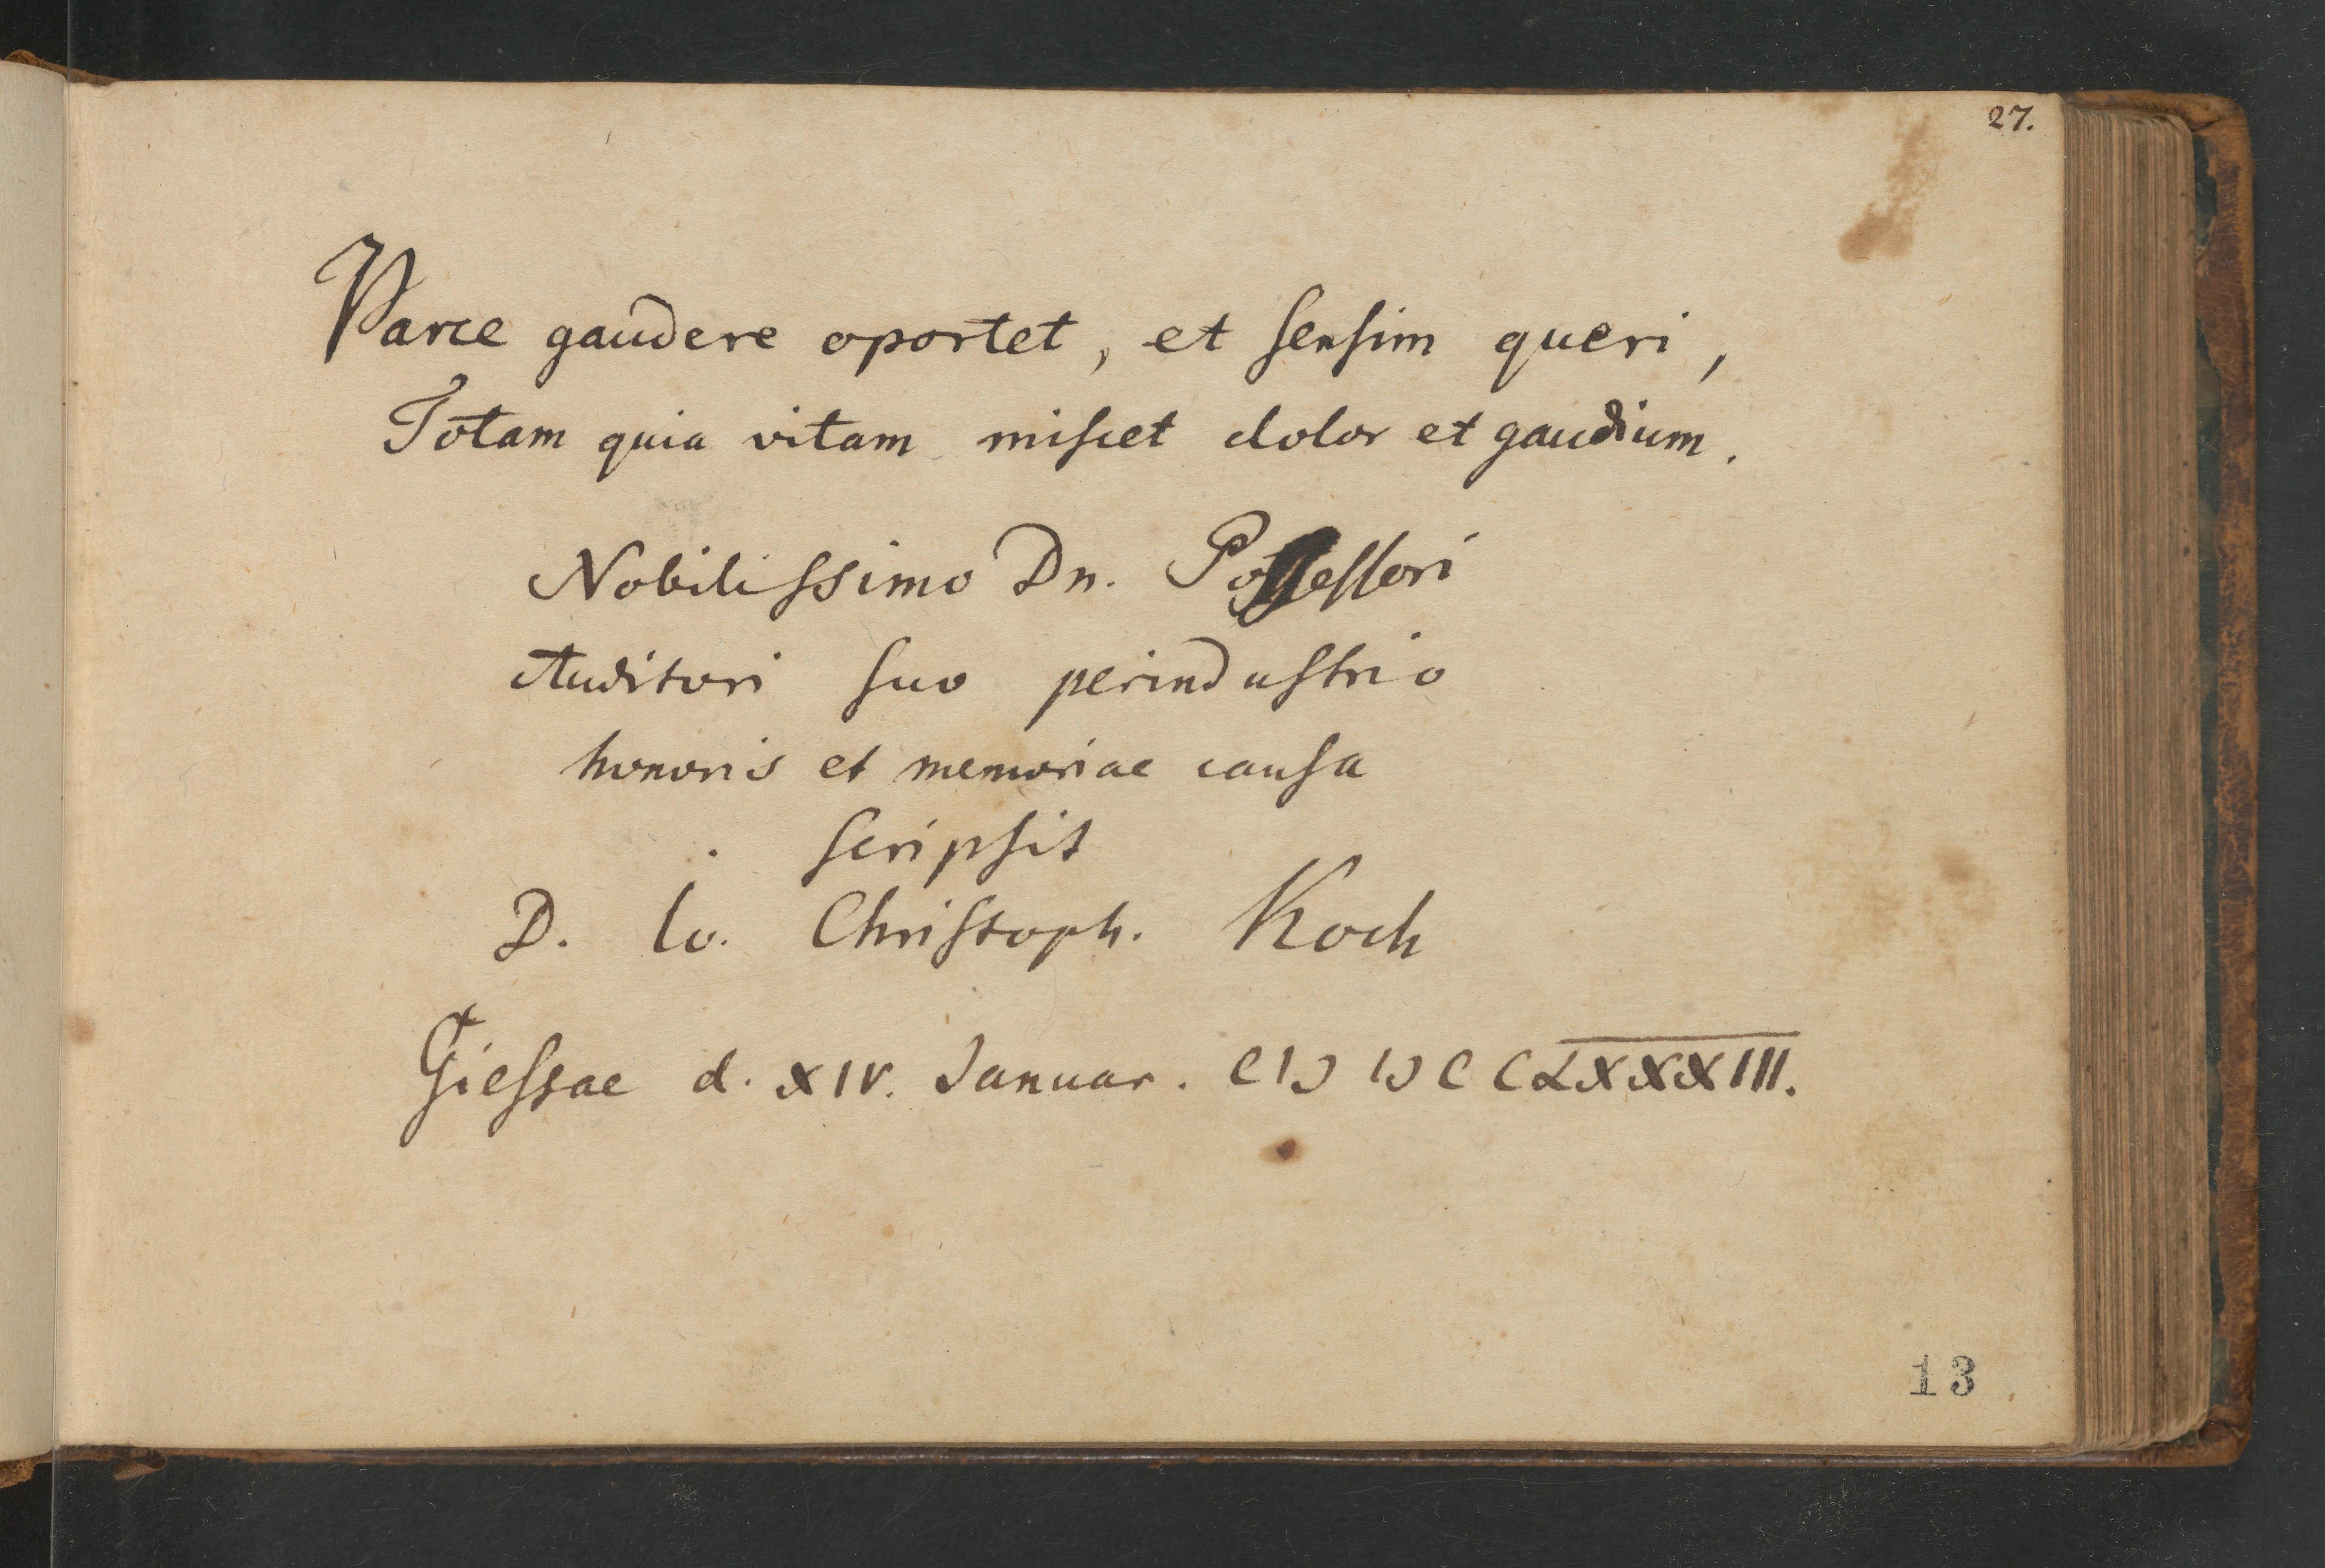 27.
Parce gaudere oportet, et ſenſim queri,
Totam quia vitam miſcet dolor et gaudium.
Nobiliſsimo Dn. Poſſeſſori
Auditori ſuo perinduſtrio
honoris et memoriae cauſa
ſcripſit
D. Io. Chriſtoph. Koch
Gieſsae d. XIV. Januar. CIↃ IↃ C C LXXXIII.
13